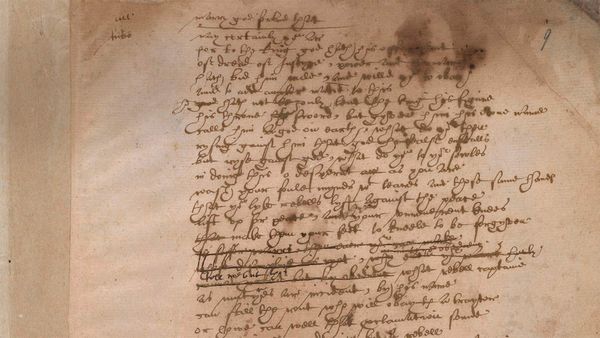 all
marry god forbid that
nay certainly you ar
for to the king god hath his offyc lent
of dread of Iustyce, power and Comaund
hath bid him rule, and willd you to obay
and to add ampler matie to this
he god hath not only lent the king his figure
his throne his sword, but gyven him his owne name
calls him a god on earth, what do you then
rysing gainst him that god himsealf enstalls
but ryse gainst god, what do you to yor sowles
in doing this o desperat ar as you are
wash your foule mynds wt teares and those same handes
that you lyke rebells lyft against the peace
lift up for peace, and your unreuerent knees
make them your feet to kneele to be forgyven
is safer warrs, then euer you can make
whose discipline is ryot, why euen yor warrs hurly
tell me but this
cannot proceed but by obedienc what rebell captaine
as mutynes ar incident, by his name
can still the rout who will obay th a traytor
or howe can well that proclamation sounde